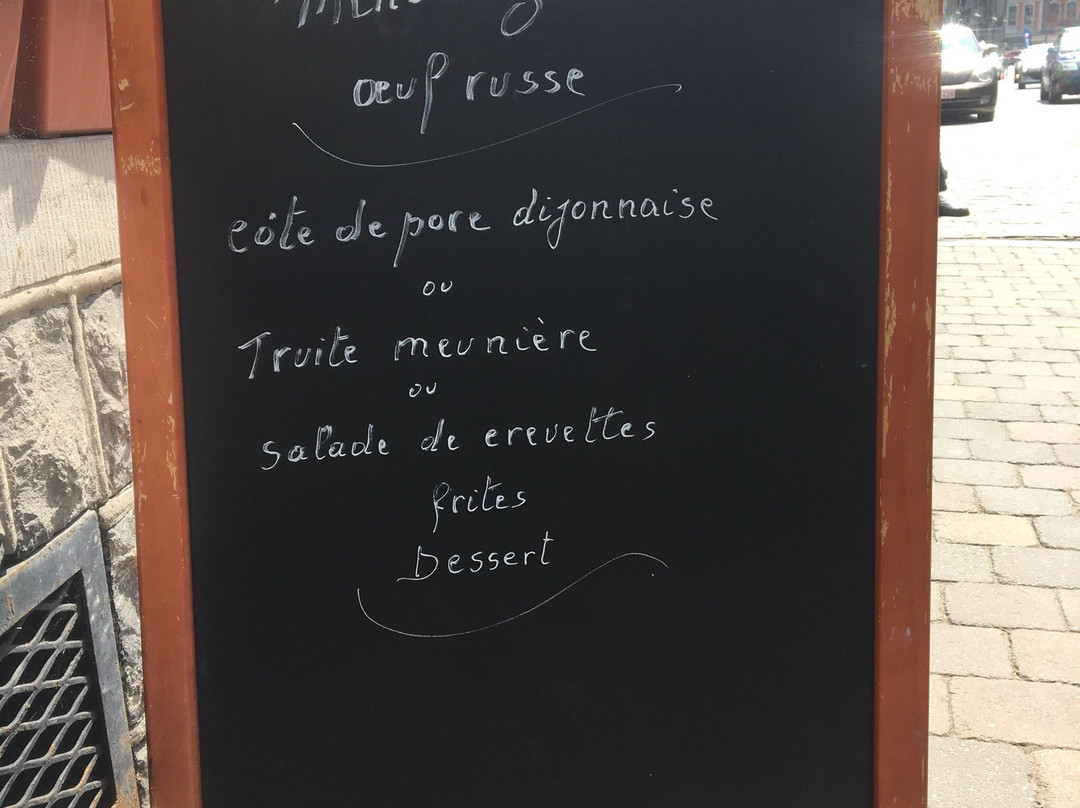 œuf russe
côte de porc dijonnaise
ou
Truite meunière
ou
salade de crevettes
frites
Dessert